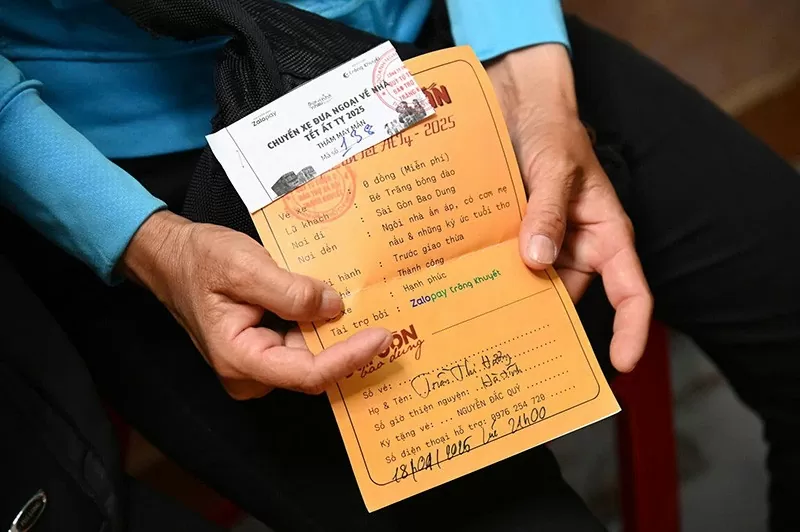 Zalopay
CHUYẾN XE ĐƯA NGOẠI VỀ NHÀ
TẾT ẤT TỴ 2025
THĂM MAY MẮN
Mã số 138
- 2025
Vé xe : 0 đồng (Miễn phí)
Lữ khách : Bé Trăng bóng đào
Nơi đi : Sài Gòn Bao Dung
Nơi đến : Ngôi nhà ấm áp, có cơm mẹ
nấu & những ký ức tuổi thơ
hành : Trước giao thừa
: Thành công
xe : Hạnh phúc
Tài trợ bởi : Zalopay trăng khuyết
bao dung
Số vé:
Họ & Tên: Trần Thị
Số giờ thiện nguyện: Hà Tĩnh
Ký tặng vé: NGUYỄN ĐẮC QUÝ
Số điện thoại hỗ trợ: 0976 254 720
18/01/2025 lúc 21h00